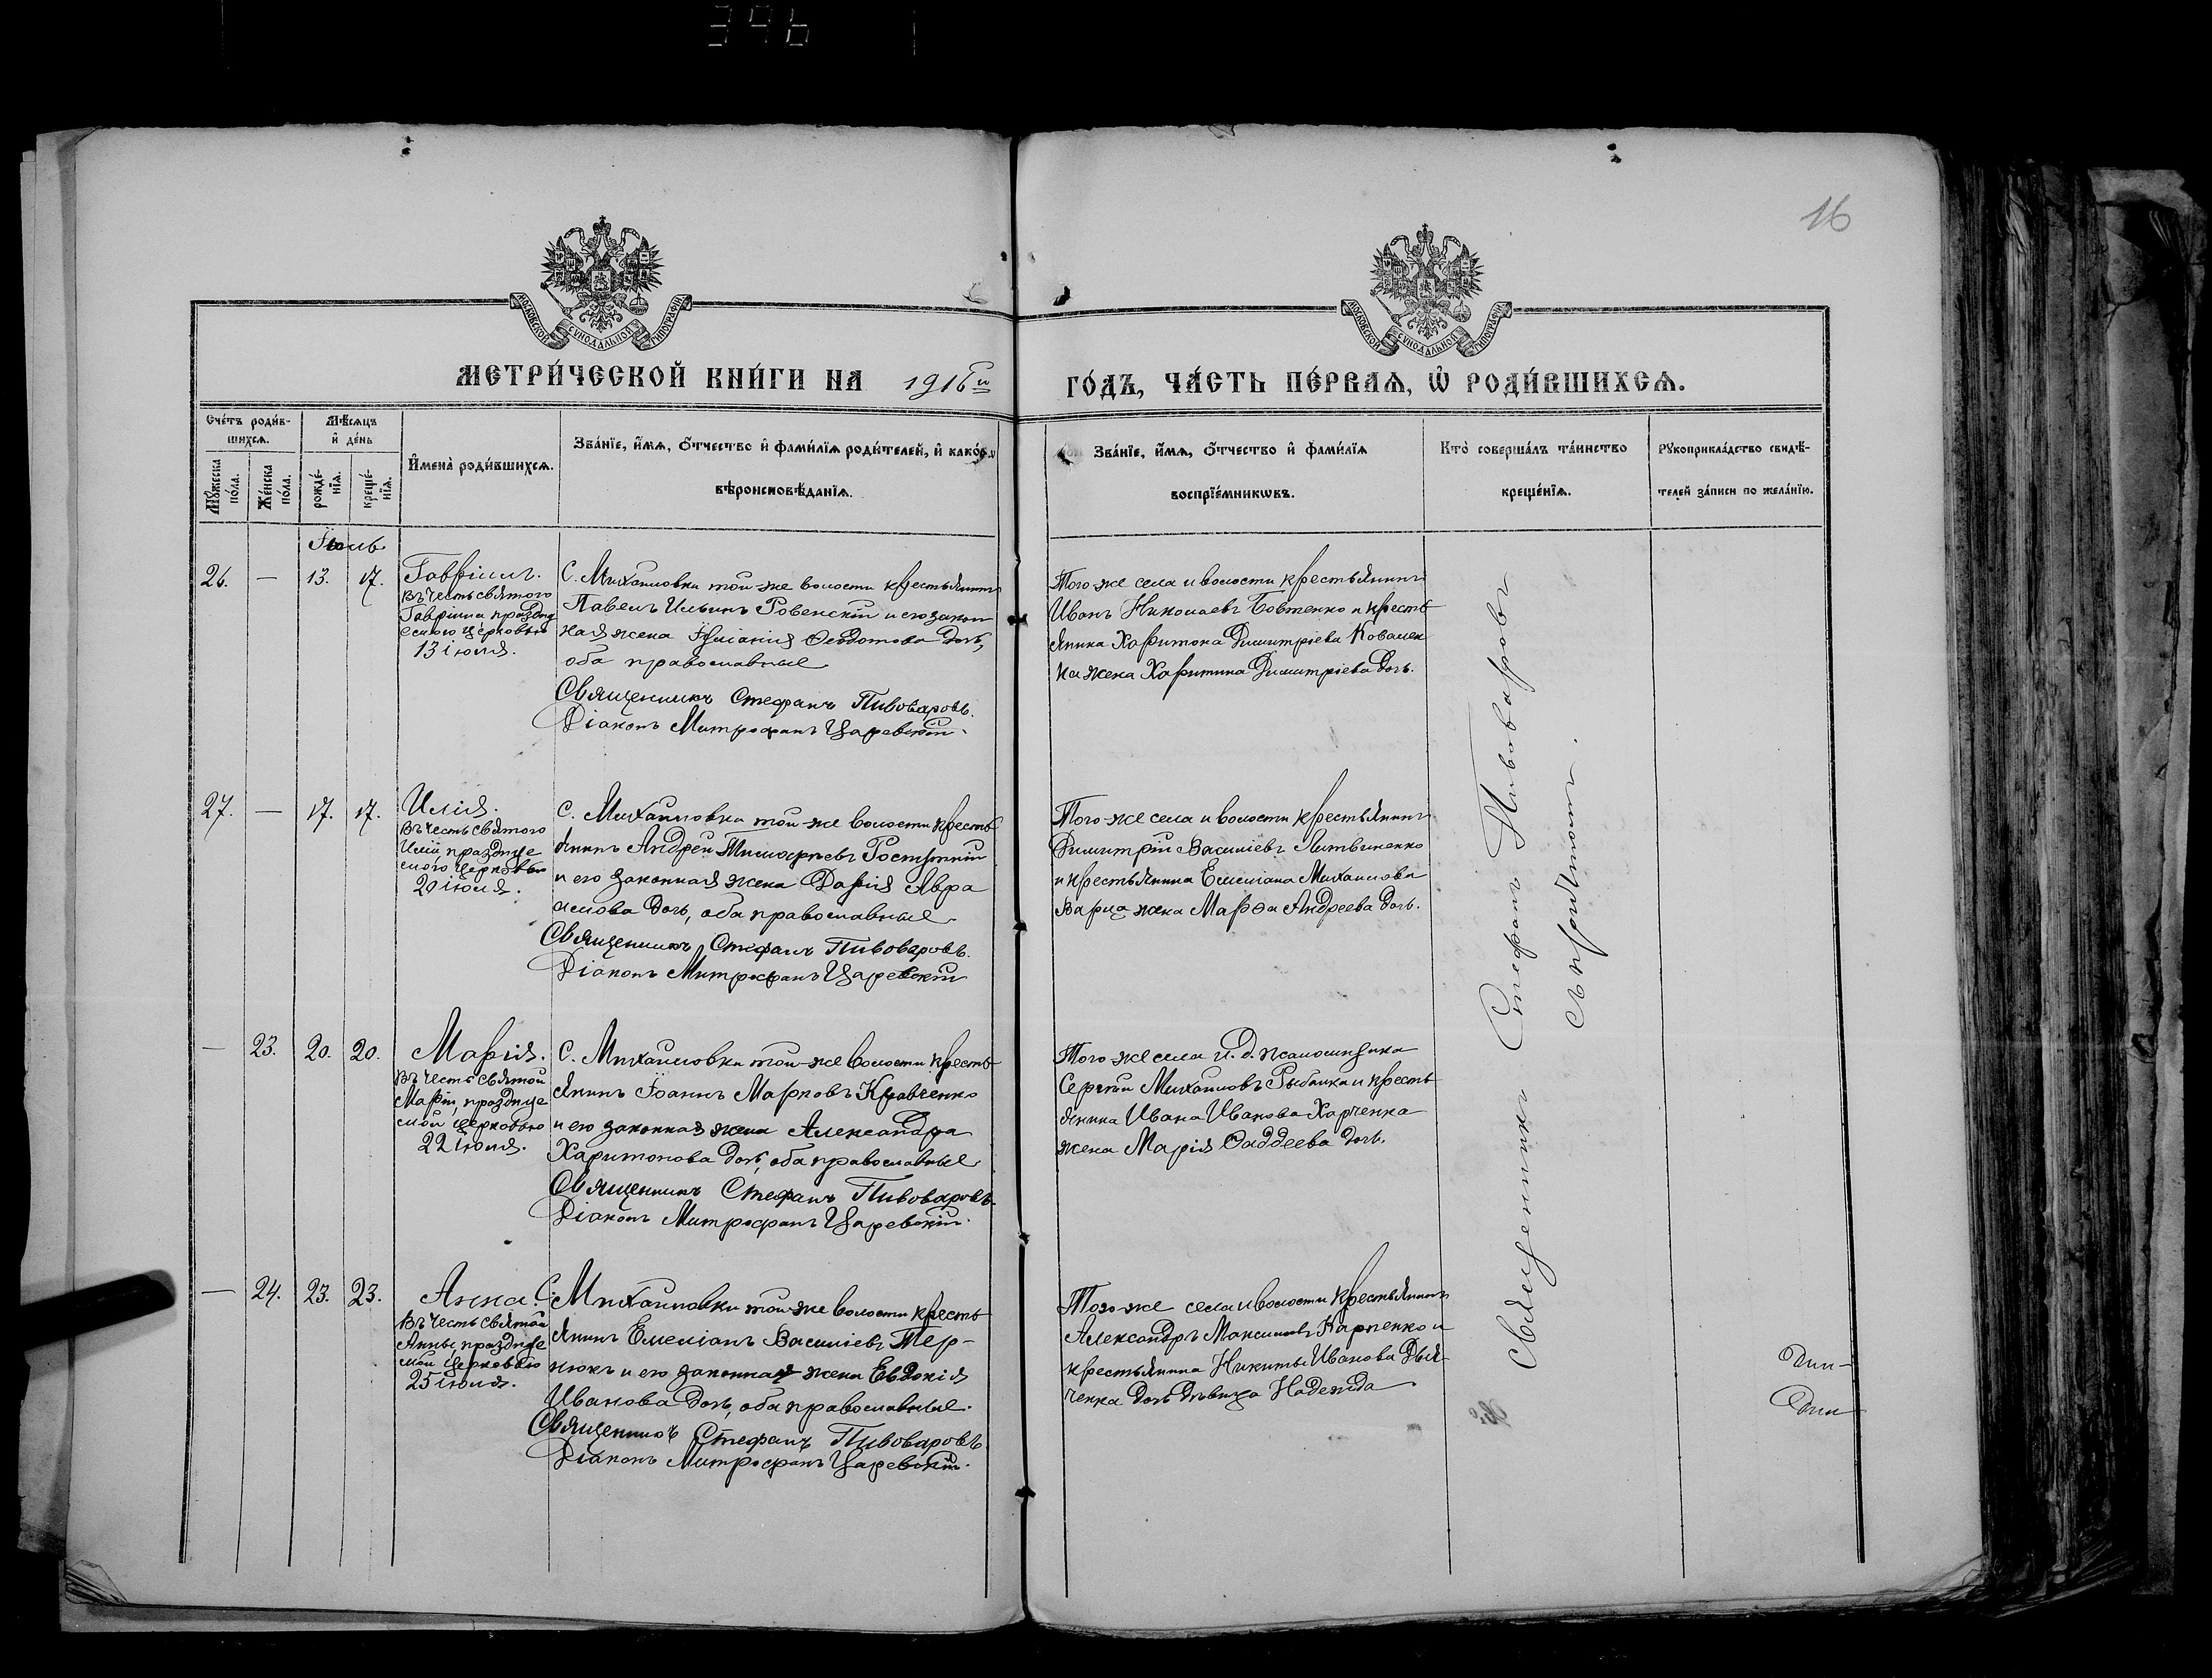 396
16
МОСКОВСКОЙ СУНОДАЛЬНОЙ ТИПОГРАФІИ
МОСКОВСКОЙ СУНОДАЛЬНОЙ ТИПОГРАФІИ
МЕТРИ́ЧЕСКОЙ КНИ́ГИ НА 1916й
ГО́ДЪ, ЧА́СТЬ ПЕ́РВАѦ, Ѡ҆ РОДИ́ВШИХСѦ.
Сче́тъ роди́в-
шихсѧ.
Мꙋ́жеска по́ла.
Же́нска по́ла.
Мѣ́сѧцъ
и҆ де́нь
рожде́-
нїѧ.
креще́-
нїѧ.
И҆мена̀ роди́вшихсѧ.
Зва́нїе, и҆́мѧ, ѻ҆́тчество и҆ фами́лїѧ роди́телей, и҆ како́гѡ
вѣроисповѣ́данїѧ.
Зва́нїе, и҆́мѧ, ѻ҆́тчество и҆ фами́лїѧ
воспрїе́мникѡвъ.
Кто̀ соверша́лъ та́инство
креще́нїѧ.
Рꙋкоприкла́дство свидѣ́-
телей за́писи по жела́нїю.
Іюль
26. — 13. 17.
Гавріилъ.
въ честь святого
Гавріила праздну
емого церковью
13 іюля.
С. Михайловки той-же волости крестьянинъ
Павелъ Ильинъ Ровенскій и его закон
ная жена Іуліанія Ѳеодотова дочь,
оба православные
Священникъ Стефанъ Пивоваровъ.
Діаконъ Митрофанъ Царевскій.
Того-же села и волости крестьянинъ
Иванъ Николаевъ Бовтенко и кресть
янина Харитона Димитріева Ковален
ка жена Харитина Димитріева дочь.
27. — 17. 17.
Илія.
въ честь святого
Иліи, праздуе
мого церковью
20 іюля.
С. Михайловки той-же волости кресть
янинъ Андрей Тимофеевъ
и его законная жена Дарія Авра
амова дочь, оба православные.
Священникъ Стефанъ Пивоваровъ.
Діаконъ Митрофанъ Царевскій
Того-же села и волости крестьянинъ
Димитрій Василіевъ Литвиненко
и крестьянина Емеліана Михаилова
жена Марѳа Андреева дочь.
— 23. 20. 20.
Марія.
въ честь святой
Маріи, праздуе
мой церковью
22 іюля.
С. Михайловки той-же волости кресть
янинъ Іоаннъ Марковъ Кравченко
и его законная жена Александра
Харитонова дочь, оба православные
Священникъ Стефанъ Пивоваровъ.
Діаконъ Митрофанъ Царевскій.
Того же села и. д. псаломщика
Сергѣй Михаиловъ Рыбалка и кресть
янина Ивана Иванова Харченка
жена Марія Ѳаддеева дочь.
— 24. 23. 23.
Анна.
въ честь святой
Анны, праздуе
мой церковью
25 іюля.
С. Михайловки той-же волости кресть
янинъ Емеліанъ Василіевъ Тер-
нюкъ и его законная жена Евдокія
Иванова дочь, оба православные.
Священникъ Стефанъ Пивоваровъ
Діаконъ Митрофанъ Царевскій.
Того же села и волости крестьянинъ
Александръ Максимовъ Карпенко и
крестьянина Никиты Иванова Дья-
ченка дочь дѣвица Надежда
Священникъ Стефанъ Пивоваровъ